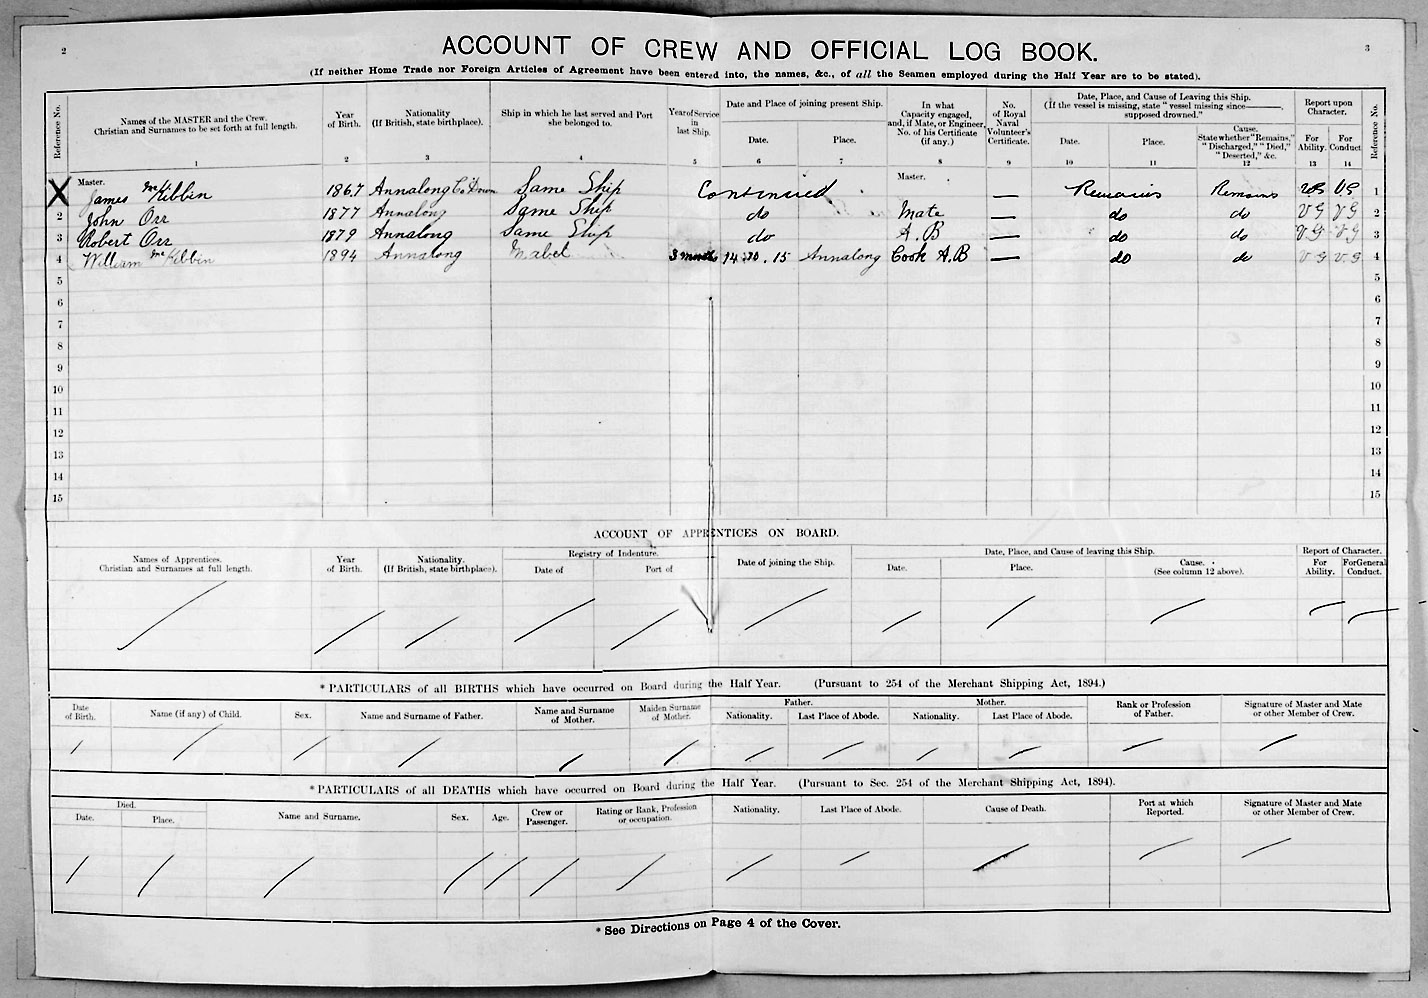 2
3
ACCOUNT OF CREW AND OFFICIAL LOG BOOK.
(If neither Home Trade nor Foreign Articles of Agreement have been entered into, the names, &c., of all the Seamen employed during the Half Year are to be stated).
Reference No.
Names of the MASTER and the Crew.
Christian and Surnames to be set forth at full length.
Year of Birth.
Nationality
(If British, state birthplace).
Ship in which he last served and Port she belonged to.
Year of Service in last Ship.
Date and Place of joining present Ship.
Date.
Place.
In what Capacity engaged, and, if Mate, or Engineer, No. of his Certificate (if any.)
No. of Royal Naval Volunteer's Certificate.
Date, Place, and Cause of Leaving this Ship.
(If the vessel is missing, state "vessel missing since———, supposed drowned."
Date.
Place.
Cause.
State whether "Remains," "Discharged," "Died," "Deserted," &c.
Report upon Character.
For Ability.
For Conduct
Reference No.
1 2 3 4 5 6 7 8 9 10 11 12 13 14
Master. Master.
X James McKibbin 1867 Annalong Co Down Same Ship Continued — Remains Remains VG VG 1
2 John Orr 1877 Annalong Same Ship do Mate — do do VG VG 2
3 Robert Orr 1879 Annalong Same Ship do A.B — do do VG VG 3
4 William McKibbin 1894 Annalong Mabel 3 months 14 .15 Annalong Cook A.B — do do VG V.G 4
5 5
6 6
7 7
8 8
9 9
10 10
11 11
12 12
13 13
14 14
15 15
ACCOUNT OF APPRENTICES ON BOARD.
Names of Apprentices.
Christian and Surnames at full length.
Year of Birth.
Nationality.
(If British, state birthplace).
Registry of Indenture.
Date of
Port of
Date of joining the Ship.
Date, Place, and Cause of leaving this Ship.
Date.
Place.
Cause.
(See column 12 above).
Report of Character.
For Ability.
For General Conduct.
* PARTICULARS of all BIRTHS which have occurred on Board during the Half Year. (Pursuant to 254 of the Merchant Shipping Act, 1894.)
Date of Birth.
Name (if any) of Child.
Sex.
Name and Surname of Father.
Name and Surname of Mother.
Maiden Surname of Mother.
Father.
Nationality.
Last Place of Abode.
Mother.
Nationality.
Last Place of Abode.
Rank or Profession of Father.
Signature of Master and Mate or other Member of Crew.
* PARTICULARS of all DEATHS which have occurred on Board during the Half Year. (Pursuant to Sec. 254 of the Merchant Shipping Act, 1894).
Died.
Date.
Place.
Name and Surname.
Sex.
Age.
Crew or Passenger.
Rating or Rank, Profession or occupation.
Nationality.
Last Place of Abode.
Cause of Death.
Port at which Reported.
Signature of Master and Mate or other Member of Crew.
* See Directions on Page 4 of the Cover.